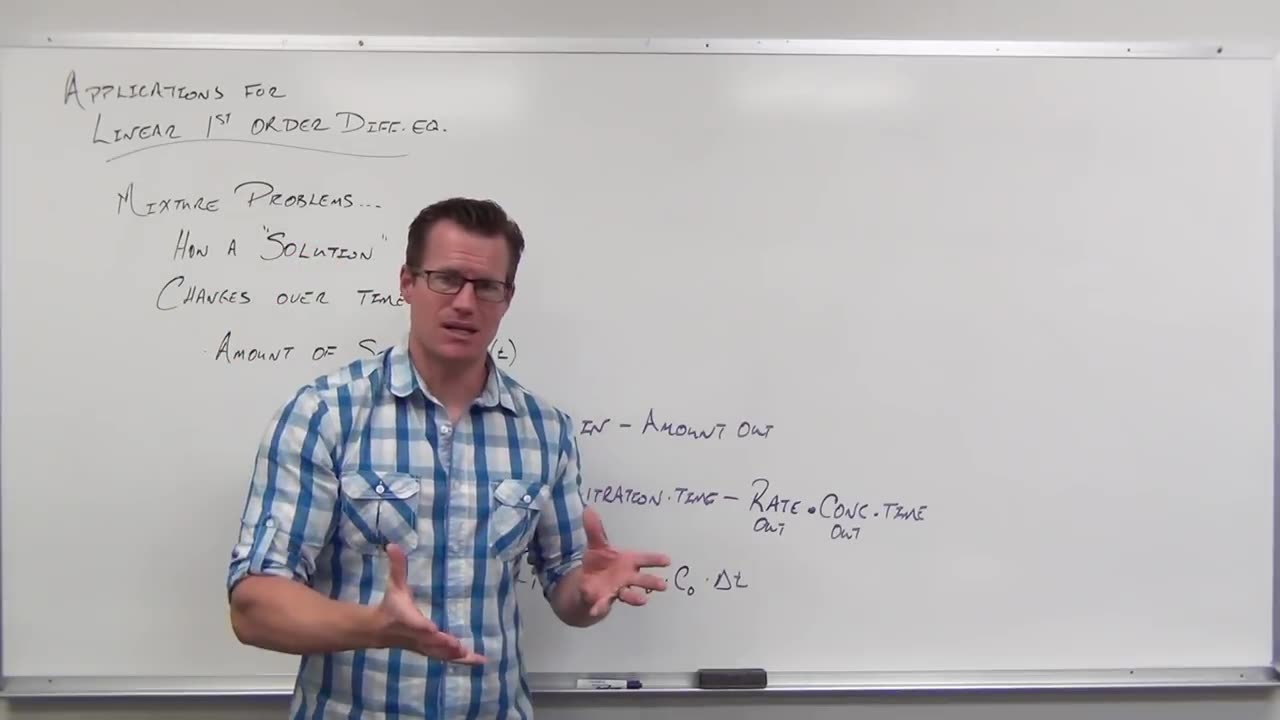 APPLICATIONS FOR
LINEAR 1ST ORDER DIFF. EQ.
MIXTURE PROBLEMS...
HOW A "SOLUTION"
CHANGES OVER TIME
· AMOUNT OF (t)
IN - AMOUNT OUT
· TIME - RATE · CONC · TIME
OUT OUT
· C₀ · Δt